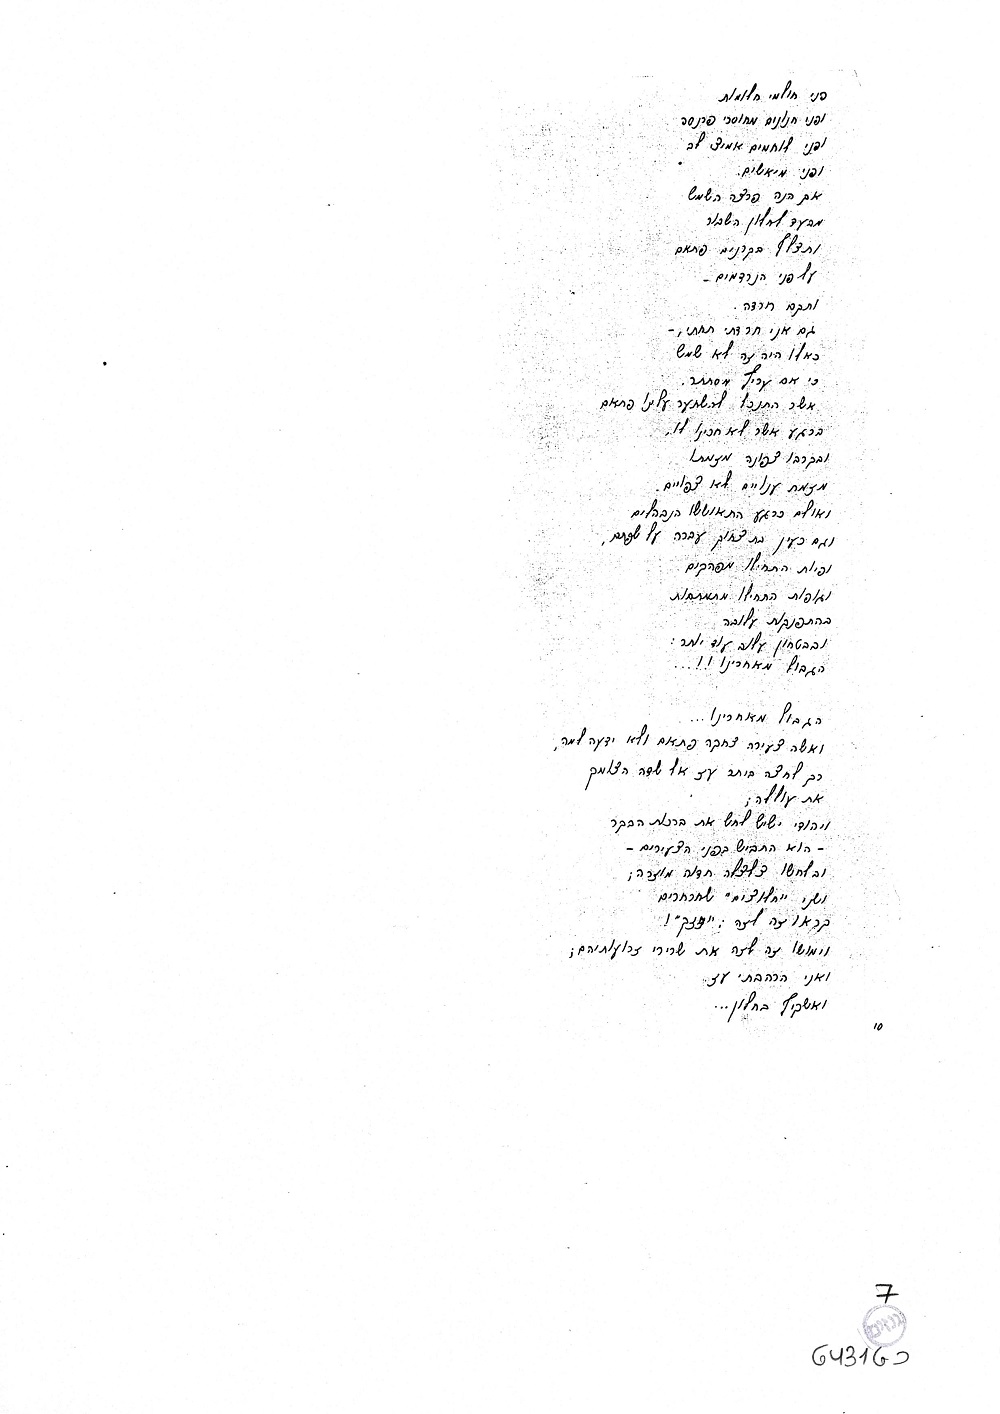 פני חולמי חלומות
ופני חנונים מחוסרי פרנסה
ופני לוחמים אמיצי לב
ופני מיאשים.
אם הנה פרצה השמש
מבעד לחלון השבור
ותצלף בקרנים פתאם
על פני הנרדמים –
ותקם חרדה.
גם אני חרדתי תחתי, –
כאלו היה זה לא שמש
כי אם עריץ מסתתר,
אשר התנכל להשתער עלינו פתאם
ברגע אשר לא חכינו לו,
ובקרבו צפונה מזמתו
מזמת ענויים לא צפויים.
ואולם כרגע התאוששו הנבהלים
וגם כעין בת צחוק עברה על שפתם,
ופיות התחילו מפהקים
וגופות התחילו מתמתחות
בהתפנקות עלובה
ובבטחון עלוב עוד יותר:
הגבול מאחרינו!!...
הגבול מאחרינו...
ואשה צעירה צחקה פתאם ולא ידעה למה,
רק לחצה ביתר עז אל שדה הצומק
את עוללה;
ויהודי ישיש לחש את ברכות הבקר
– הוא התביש בפני הצעירים –
ובלחשו צלצלה חדוה מוזרה;
ושני "חלוצים" שחרחרים
קראו זה לזה: "חזק"!
וימושו זה לזה את שרירי זרועותיהם;
ואני הרהבתי עז
ואשקיף בחלון...
10
7
גנזים
כ 64316